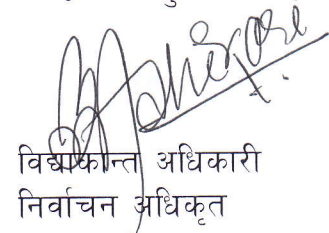 विद्याकान्त अधिकारी
निर्वाचन अधिकृत